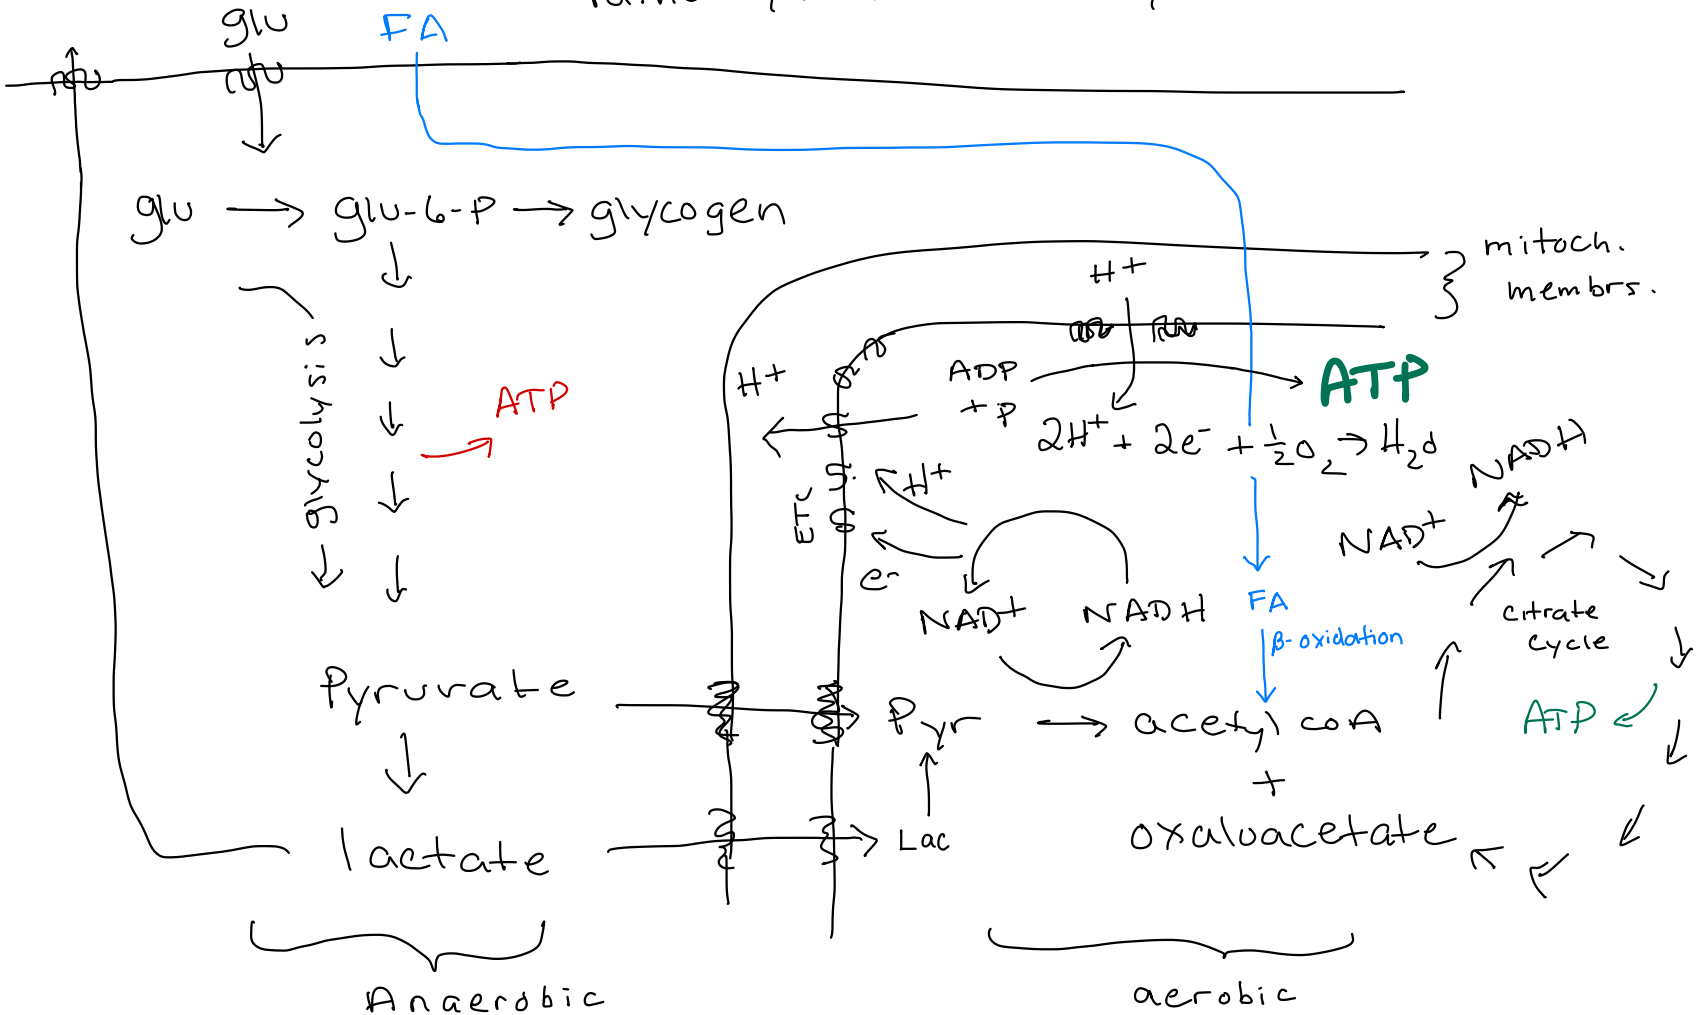 glu
FA
glu → glu-6-P → glycogen
mitoch.
membrs.
H+
glycolysis
ATP
H+
ADP
+ P
ATP
2H+ + 2e- + ½O2 → H2O
NADH
NAD+
ETC
H+
e-
NAD+
NADH
FA
β-oxidation
citrate
cycle
Pyruvate
Pyr → acetyl coA
ATP
+
lactate
Lac
oxaloacetate
Anaerobic
aerobic